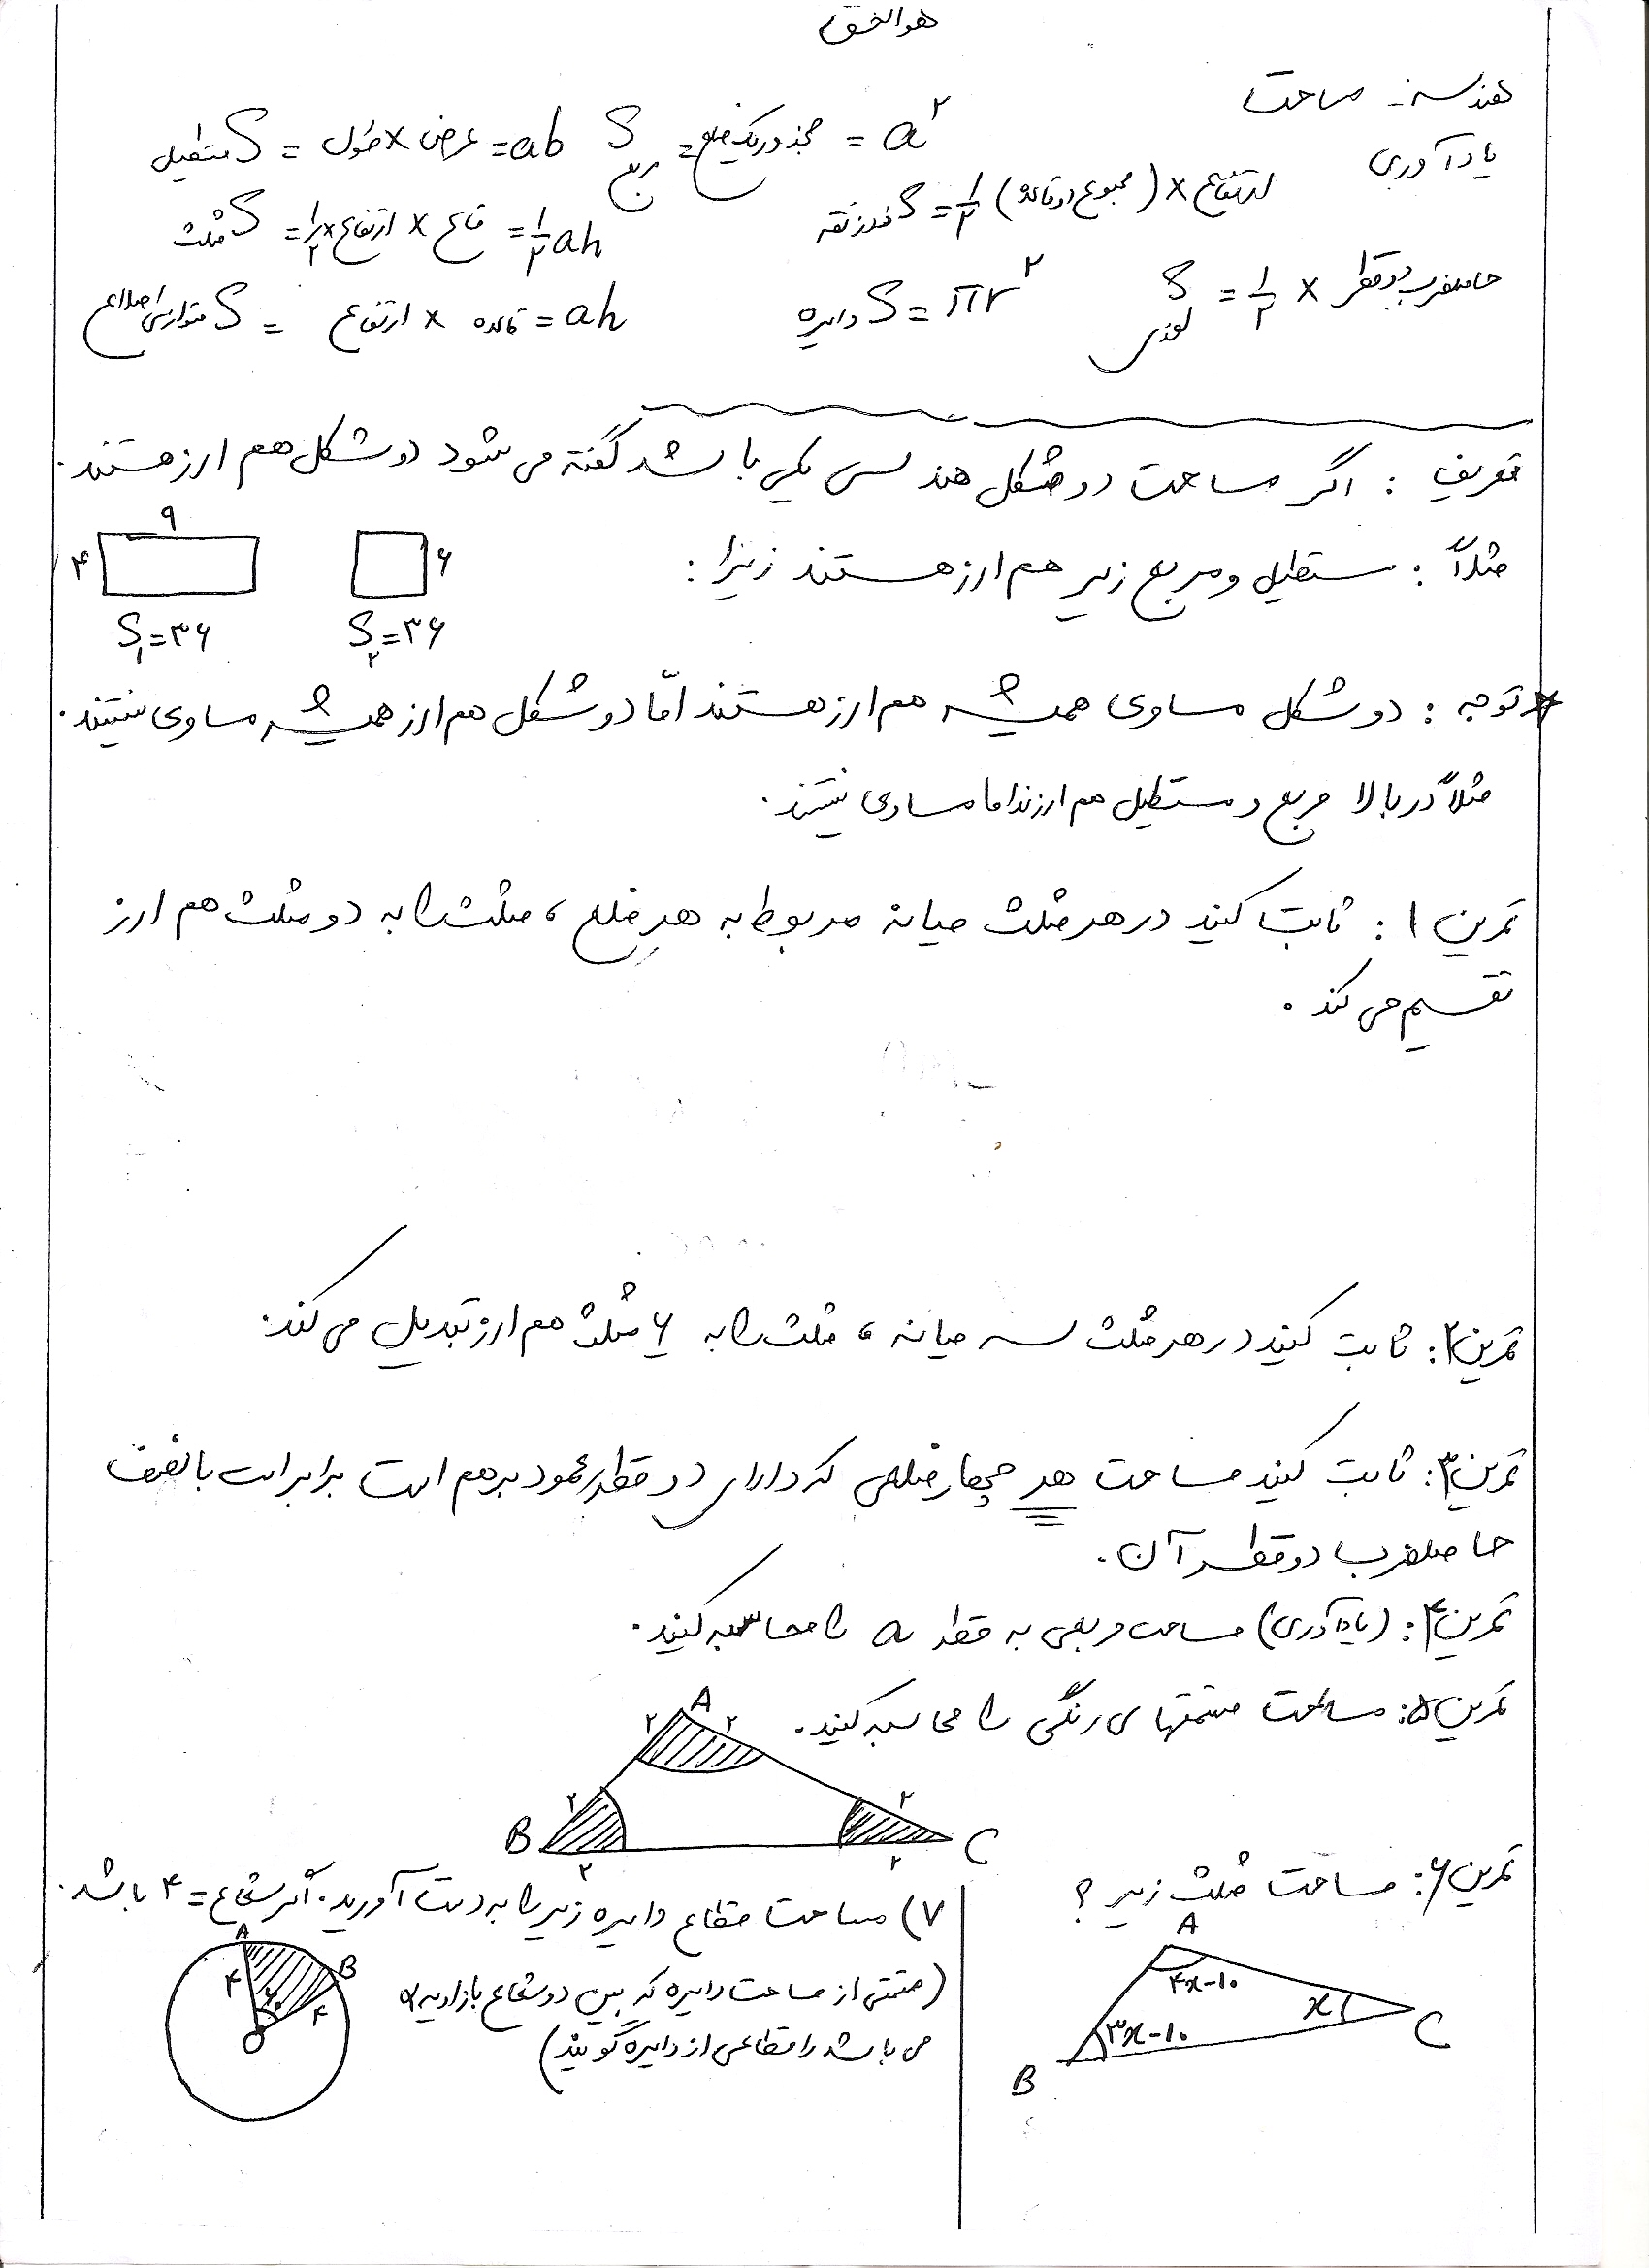 هوالخالق
هندسه - مساحت
یادآوری
S مربع = مجذور یک ضلع = a²
S مستطیل = طول × عرض = ab
S ذوزنقه = ۱/۲ (مجموع دو قاعده) × ارتفاع
S مثلث = ۱/۲ × ارتفاع × قاعده = ۱/۲ ah
S لوزی = ۱/۲ × حاصلضرب دو قطر
S دایره = πr²
S متوازی‌الاضلاع = ارتفاع × قاعده = ah
تعریف : اگر مساحت دو شکل هندسی یکی باشد گفته می شود دو شکل هم ارز هستند.
مثلاً : مستطیل و مربع زیر هم ارز هستند زیرا :
۶
S۲ = ۳۶
۹
۴
S۱ = ۳۶
* توجه : دو شکل مساوی همیشه هم ارز هستند امّا دو شکل هم ارز همیشه مساوی نیستند.
مثلاً در بالا مربع و مستطیل هم ارزند اما مساوی نیستند.
تمرین ۱ : ثابت کنید در هر مثلث میانه مربوط به هر ضلع ، مثلث را به دو مثلث هم ارز
تقسیم می کند .
تمرین ۲ : ثابت کنید در هر مثلث سه میانه ، مثلث را به ۶ مثلث هم ارز تبدیل می کند.
تمرین ۳ : ثابت کنید مساحت هر چهارضلعی که دارای دو قطر عمود بر هم است برابر است با نصف
حاصلضرب دو قطر آن .
تمرین ۴ : (یادآوری) مساحت مربعی به قطر a را محاسبه کنید .
تمرین ۵ : مساحت قسمتهای رنگی را محاسبه کنید .
A
۲ ۲
۲ ۲
B C
۲ ۲
تمرین ۶ : مساحت مثلث زیر ؟
A
۴x-۱۰
x
۳x-۱۰
C
B
۷) مساحت قطاع دایره زیر را به دست آورید . اگر شعاع = ۴ باشد .
(قسمتی از مساحت دایره که بین دو شعاع با زاویه α
می باشد را قطاعی از دایره گویند)
A
B
۴
۴
O